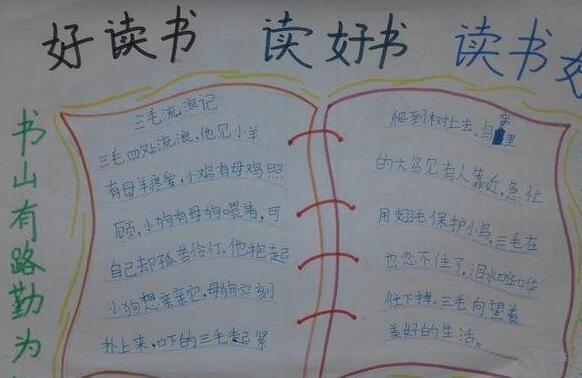 好读书 读好书 读书好
书山有路勤为
三毛流浪记
三毛四处流浪，他见小羊
有母羊疼爱，小鸡有母鸡照
顾，小狗有母狗喂养，可
自己却孤苦伶仃，他抱起
小狗想亲亲它，母狗立刻
扑上来，吓的三毛赶紧
爬到树上去。鸟窝里
的大鸟见有人靠近，急忙
用翅毛保护小鸟，三毛在
也忍不住了，泪水哗哗
往下掉。三毛向望着
美好的生活。